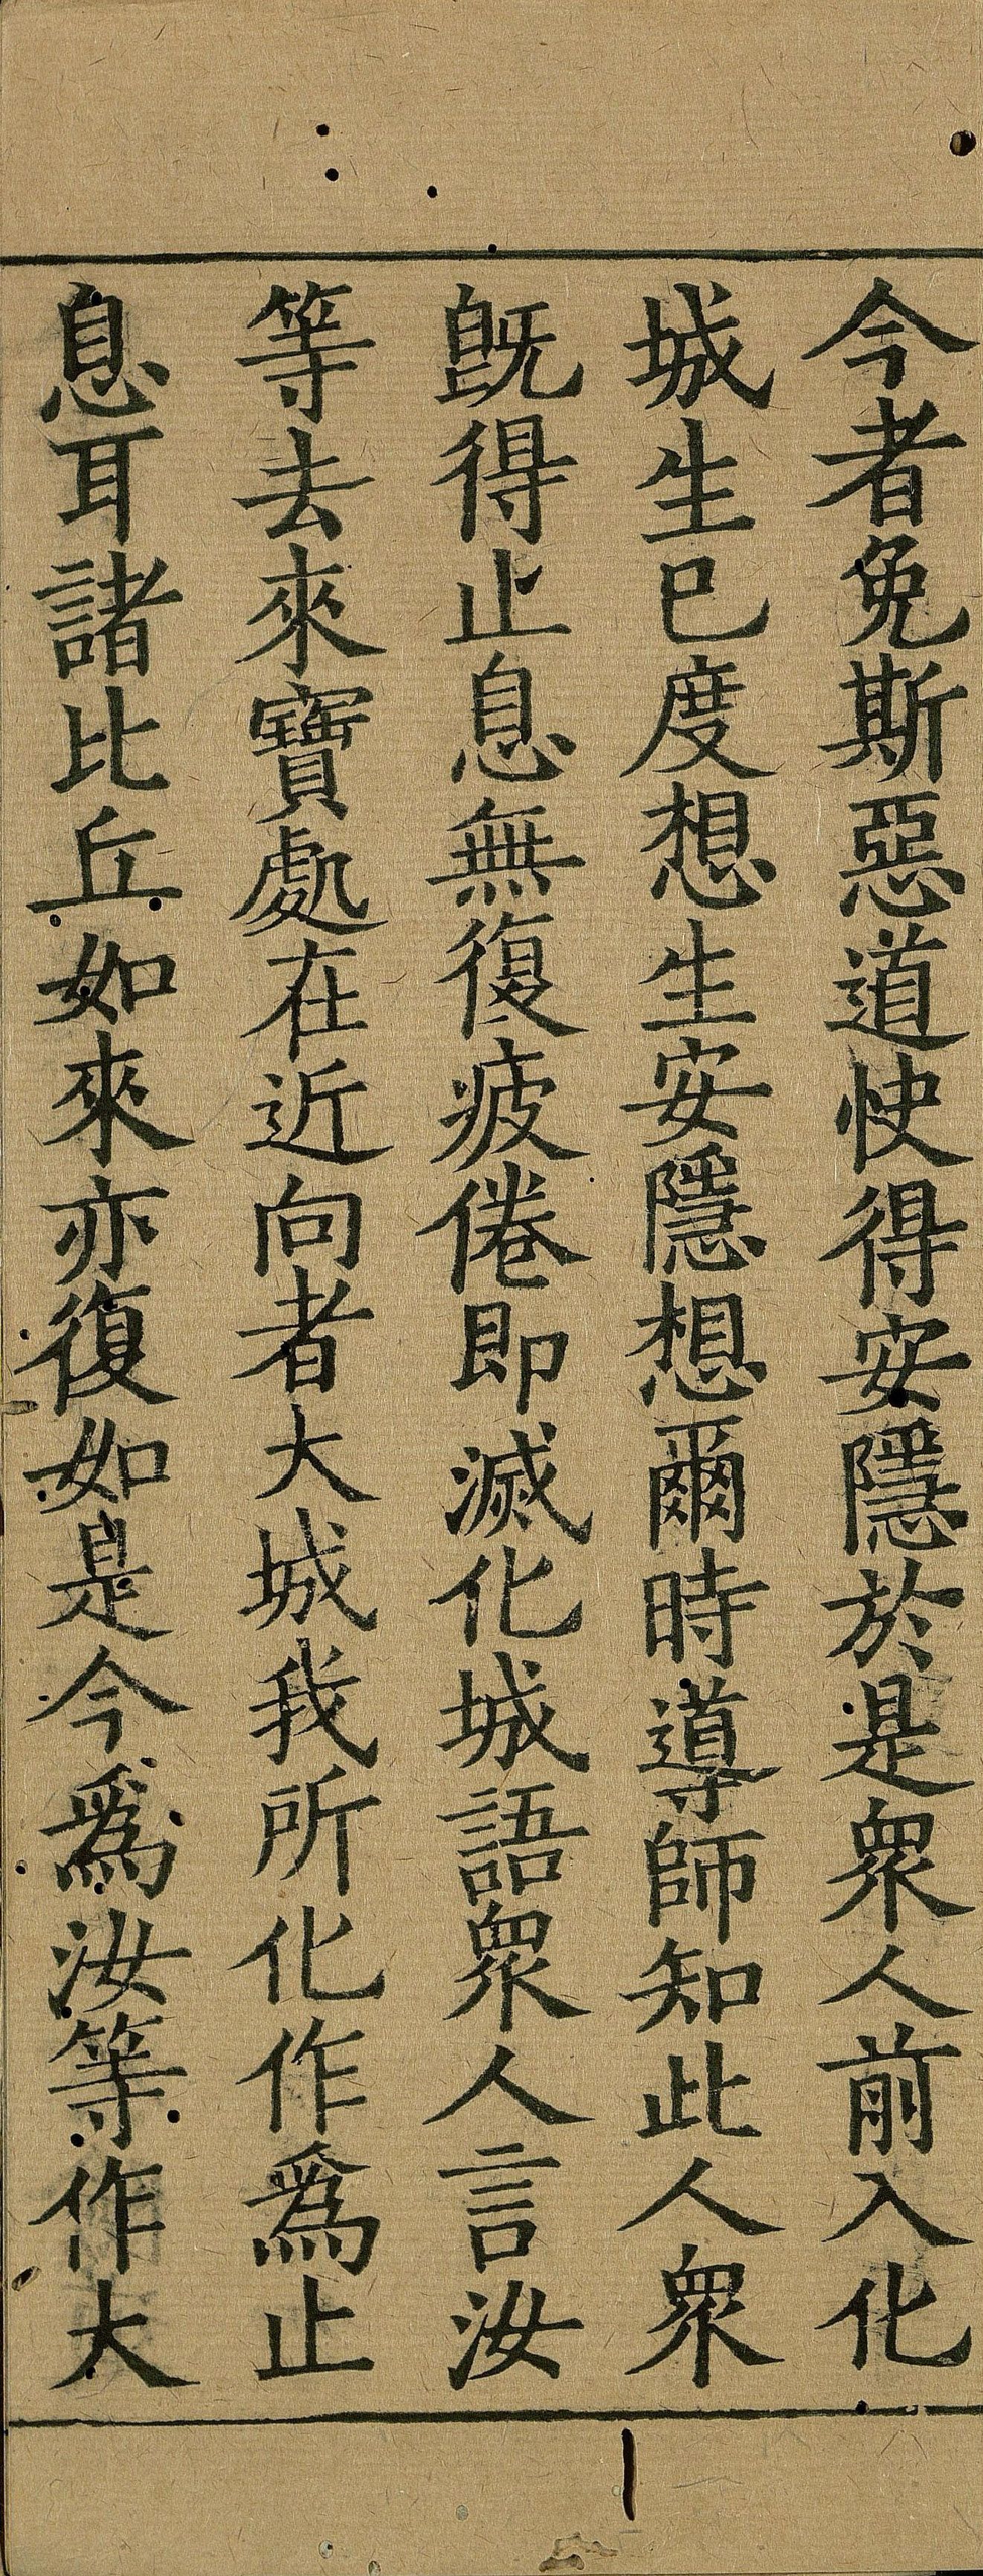 今者免斯惡道快得安隱於是衆人前入化
城生已度想生安隱想爾時導師知此人衆
旣得止息無復疲倦即滅化城語衆人言汝
等去來寶處在近向者大城我所化作爲止
息耳諸比丘如來亦復如是今爲汝等作大